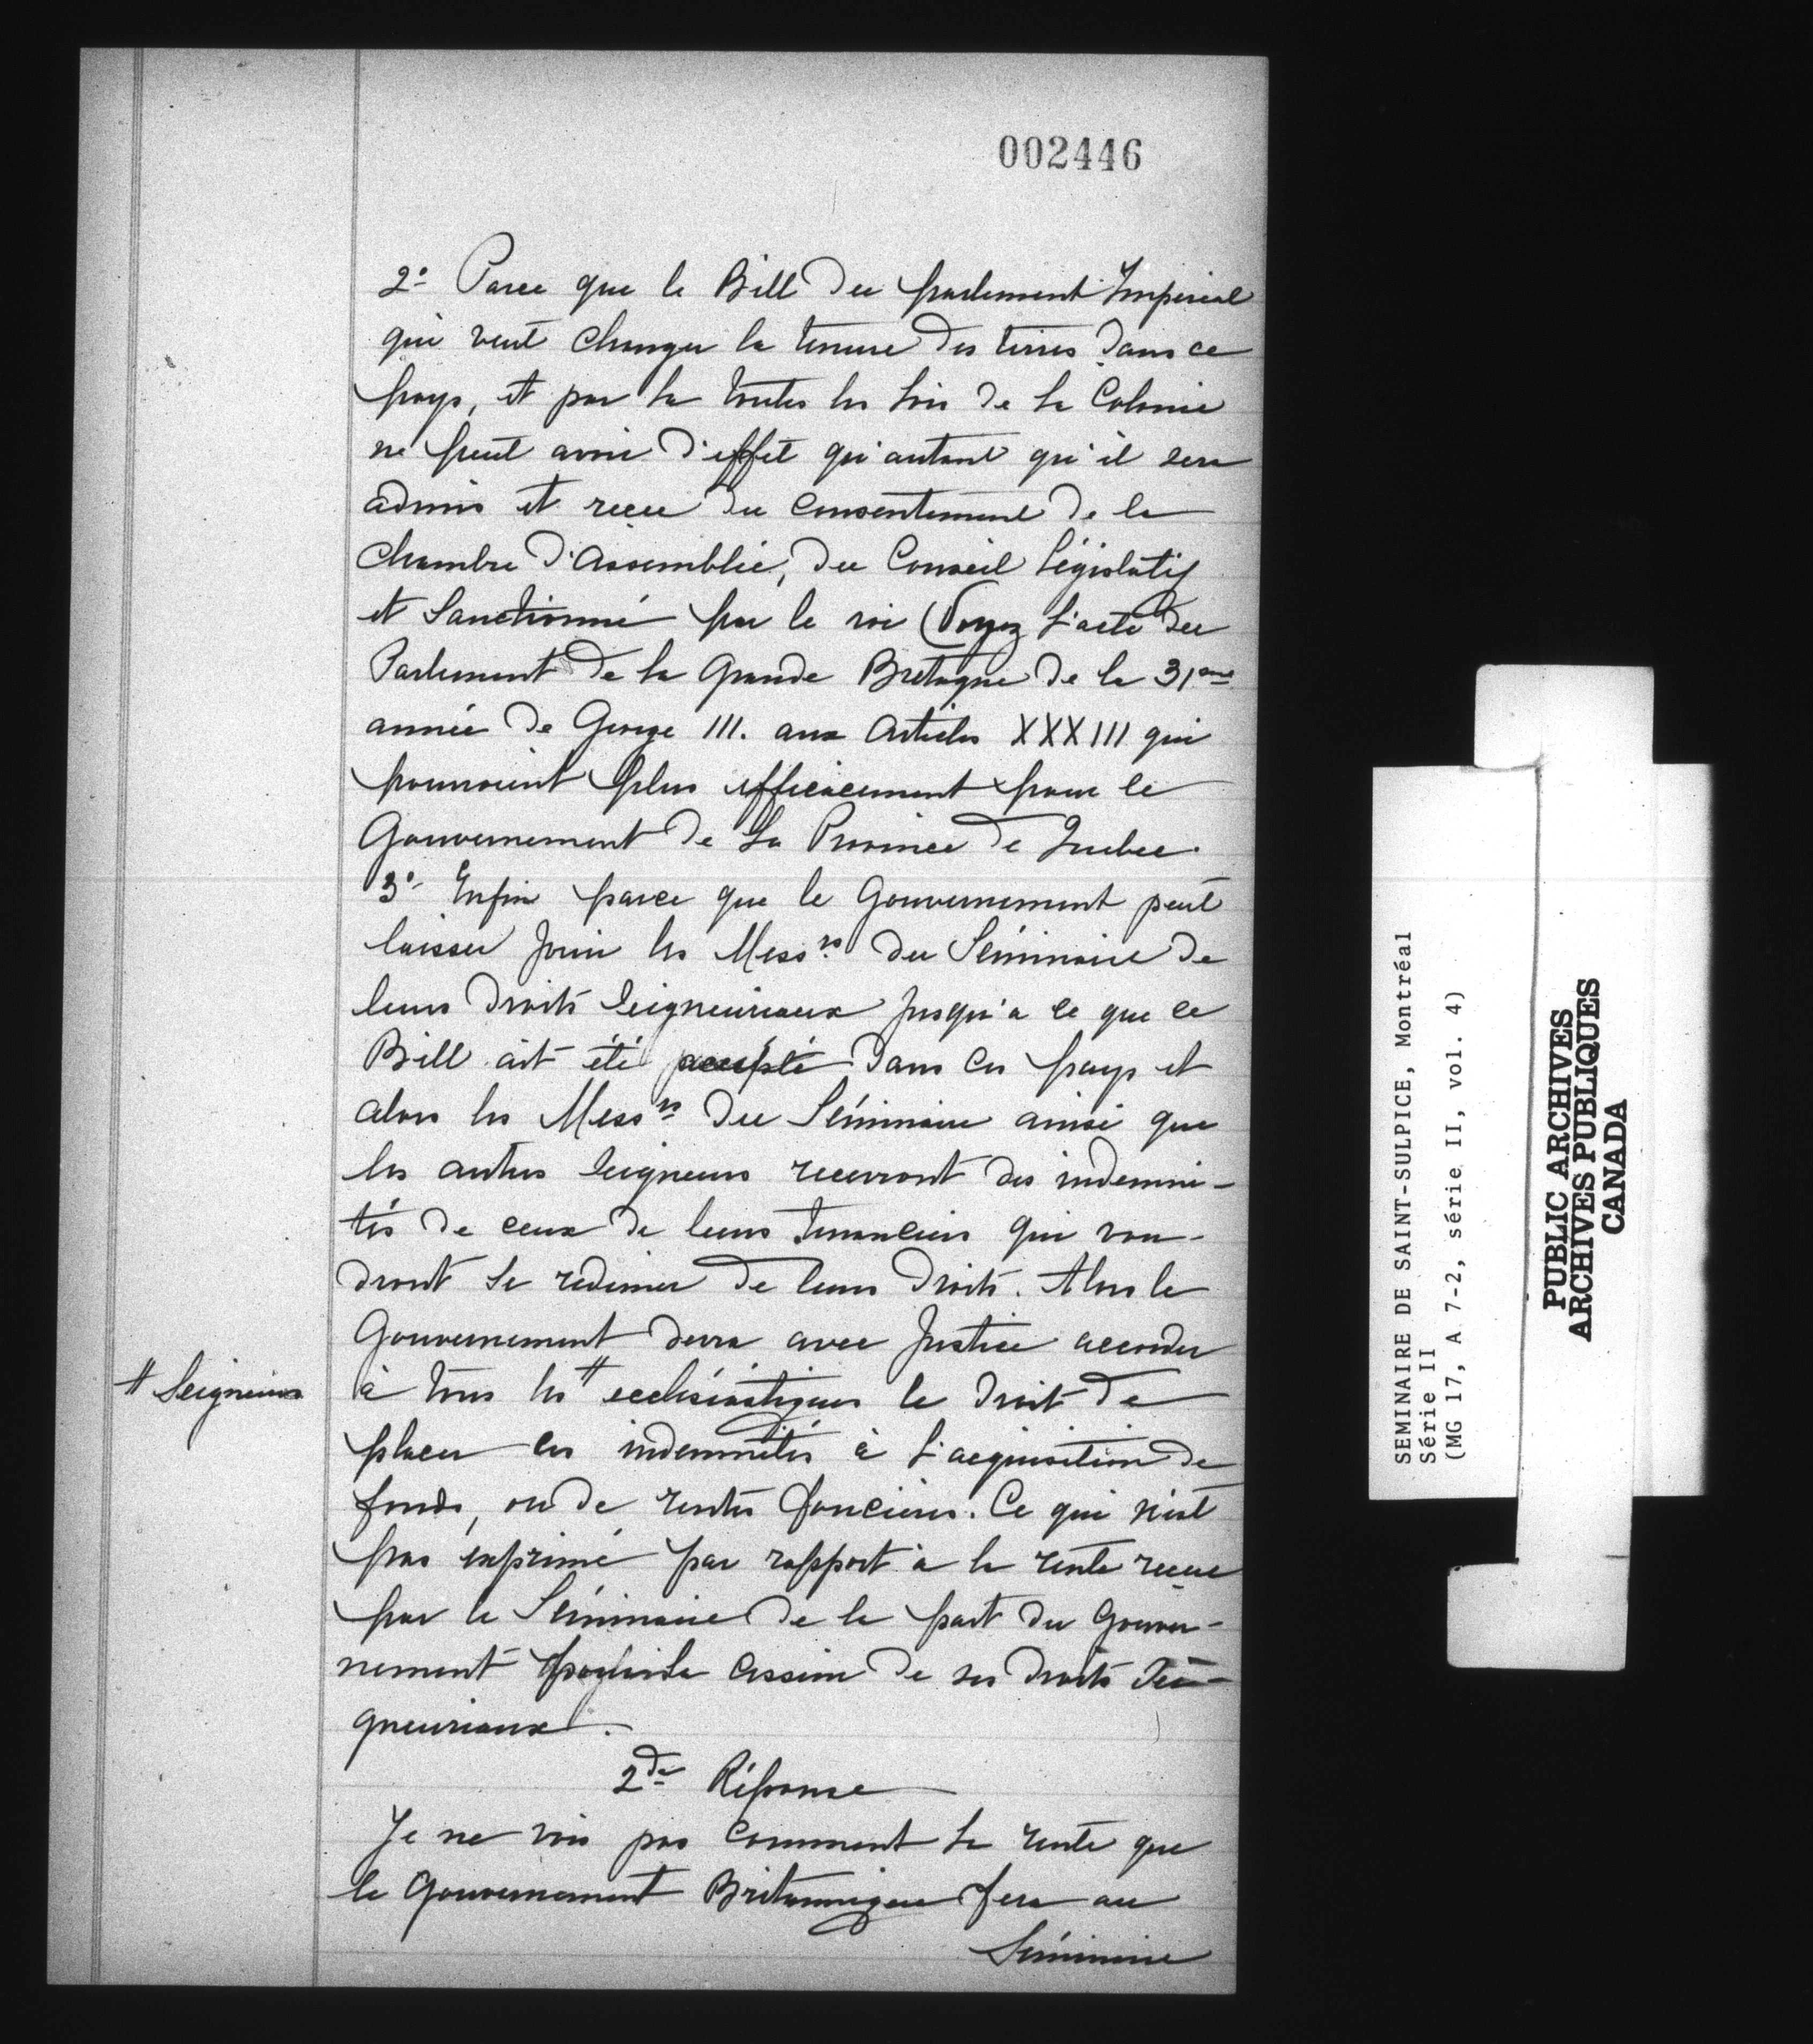 002446
2º Parce que le Bill du parlement Imperial
qui veut changer la tenure des terres dans ce
pays, et par la toutes les lois de la Colonie
ne peut avoir d'effet qu'autant qu'il sera
admis et reçu du consentement de la
chambre d'Assemblée, du Conseil Législatif
et Sanctionné par le roi (Voyez l'acte du
Parlement de la Grande Bretagne de la 31eme
année de George III. aux Articles XXXIII qui
pourvoient plus efficacement pour le
Gouvernement de La Province de Quebec.
3º Enfin parce que le Gouvernement peut
laisser jouir les Messrs du Séminaire de
leurs droits Seigneuriaux jusqu'a ce que ce
Bill ait été accepté dans ces pays et
alors les Messrs du Séminaire ainsi que
les autres Seigneurs recevront des indemni-
tés de ceux de leurs tenanciers qui vou-
dront se redimer de leurs droits. Alors le
Gouvernement devra avec Justice accorder
# Seigneurs
à tous les # ecclésiastiques le droit de
placer ces indemnités à l'acquisition de
fonds, ou de rentes foncieres. Ce qui n'est
pas exprimé par rapport à la rente reçue
par le Séminaire de la part du Gouver-
nement pour la Cession de ses droits Sei-
gneuriaux.
2de Réponse
Je ne vois pas comment la rente que
le Gouvernement Britannique fera au
Séminaire
SEMINAIRE DE SAINT-SULPICE, Montréal
Série II
(MG 17, A 7-2, série II, vol. 4)
PUBLIC ARCHIVES
ARCHIVES PUBLIQUES
CANADA